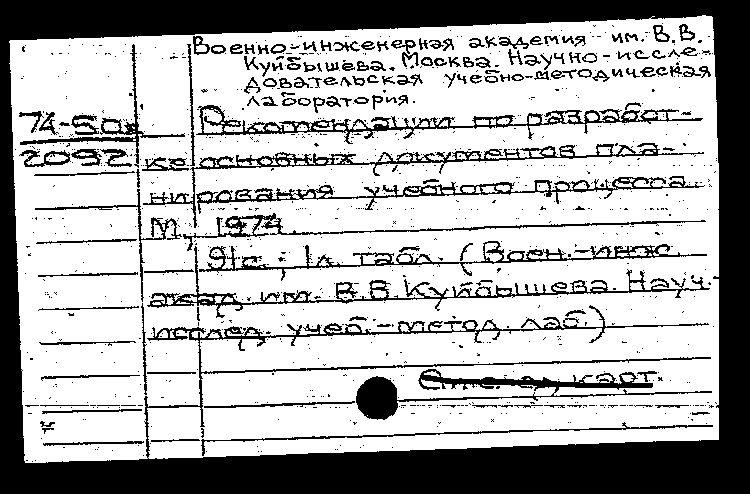 Военно-инженерная академия им. В.В.
Куйбышева. Москва. Научно-иссле-
довательская учебно-методическая
лаборатория.
74-50в Рекомендации по разработ-
2092 ке основных документов пла-
нирования учебного процесса.
М., 1974.
91с.; 1л. табл. (Воен.-инж.
акад. им. В.В.Куйбышева. Науч.-
исслед. учеб.-метод. лаб.).
карт.